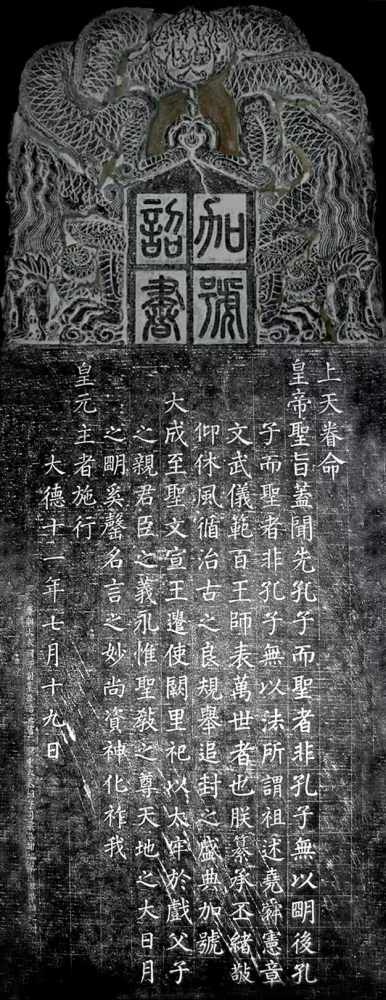 加號
詔書
上天眷命
皇帝聖旨蓋聞先孔子而聖者非孔子無以明後孔
子而聖者非孔子無以法所謂祖述堯舜憲章
文武儀範百王師表萬世者也朕纂承丕緒敬
仰休風循治古之良規舉追封之盛典加號
大成至聖文宣王遣使闕里祀以太牢於戲父子
之親君臣之義永惟聖教之尊天地之大日月
之明奚罄名言之妙尚資神化祚我
皇元主者施行
大德十一年七月十九日